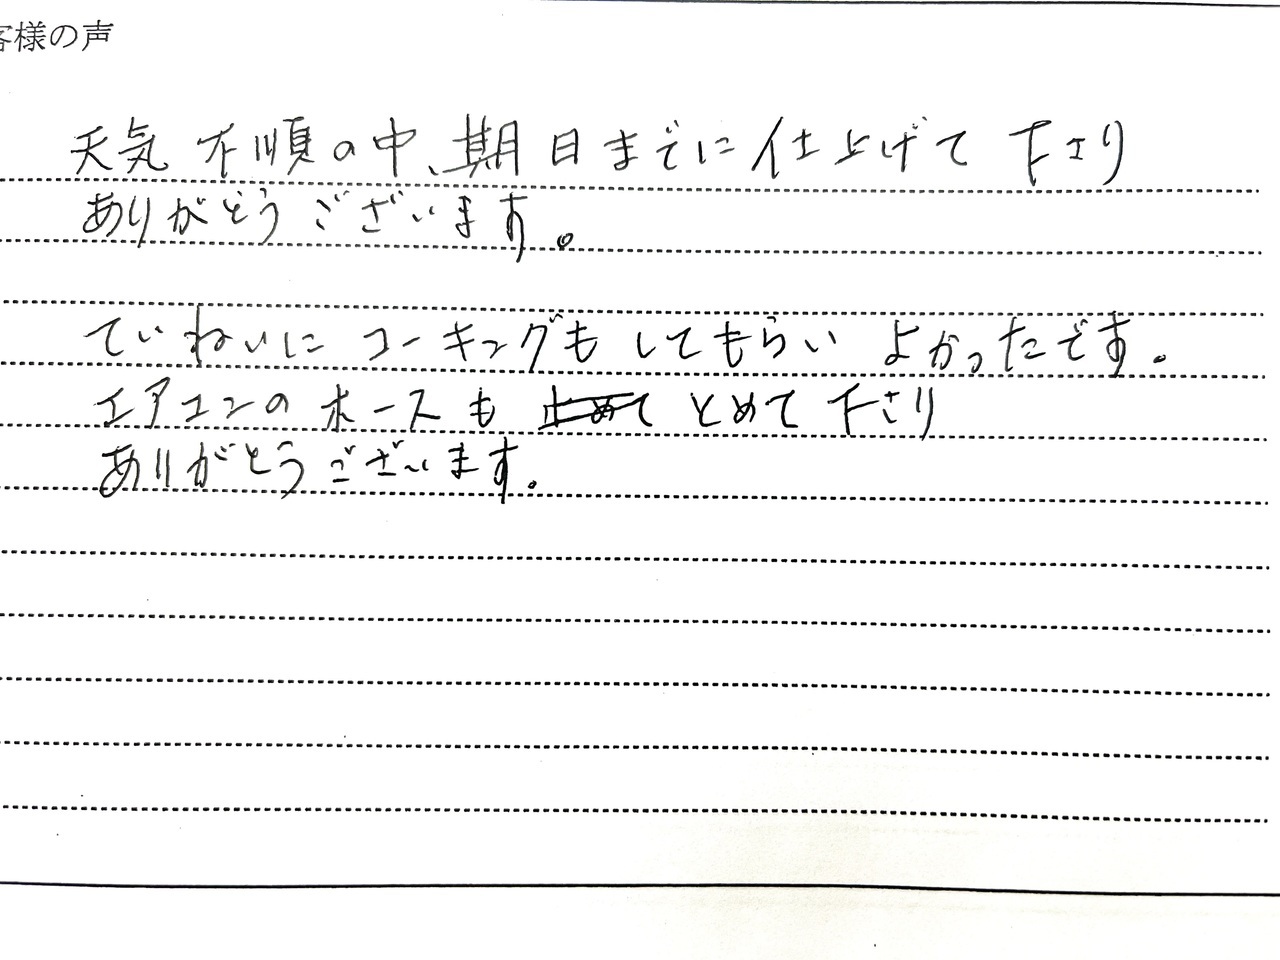 客様の声
天気不順の中、期日までに仕上げて下さり
ありがとうございます。
ていねいにコーキングもしてもらいよかったです。
エアコンのホースも 止めて とめて下さり
ありがとうございます。